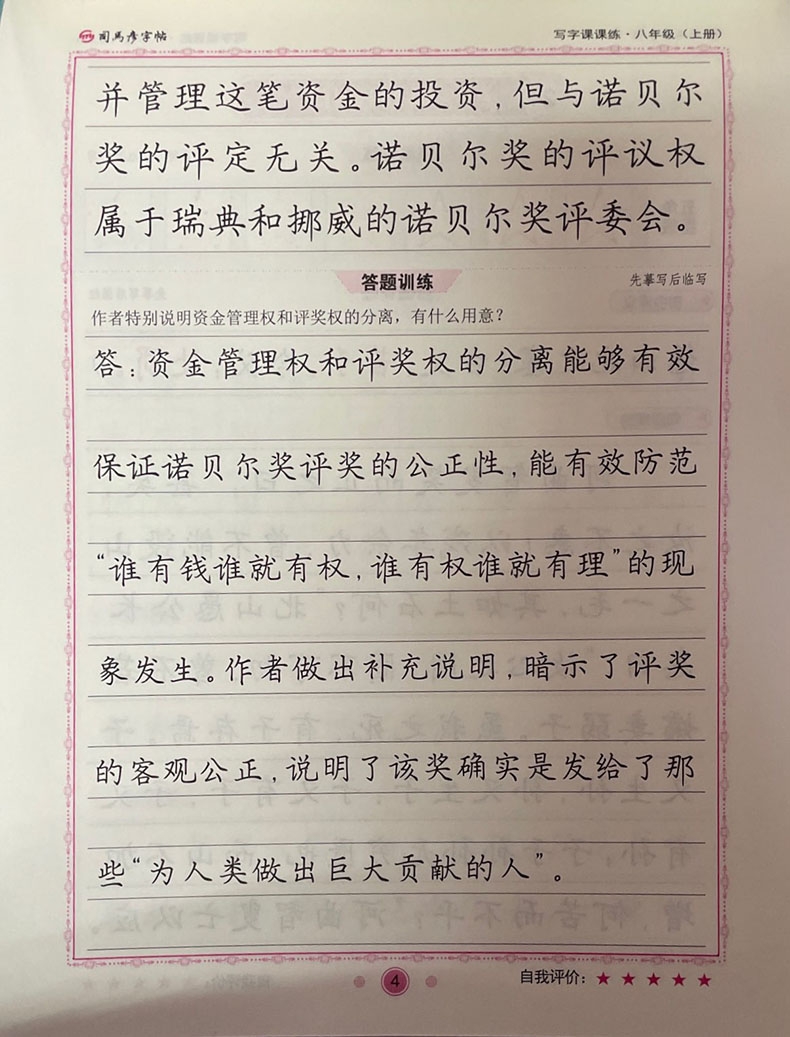 司马彦字帖
写字课课练·八年级（上册）
并管理这笔资金的投资，但与诺贝尔
奖的评定无关。诺贝尔奖的评议权
属于瑞典和挪威的诺贝尔奖评委会。
答题训练
先摹写后临写
作者特别说明资金管理权和评奖权的分离，有什么用意？
答：资金管理权和评奖权的分离能够有效
保证诺贝尔奖评奖的公正性，能有效防范
“谁有钱谁就有权，谁有权谁就有理”的现
象发生。作者做出补充说明，暗示了评奖
的客观公正，说明了该奖确实是发给了那
些“为人类做出巨大贡献的人”。
4
自我评价：★ ★ ★ ★ ★